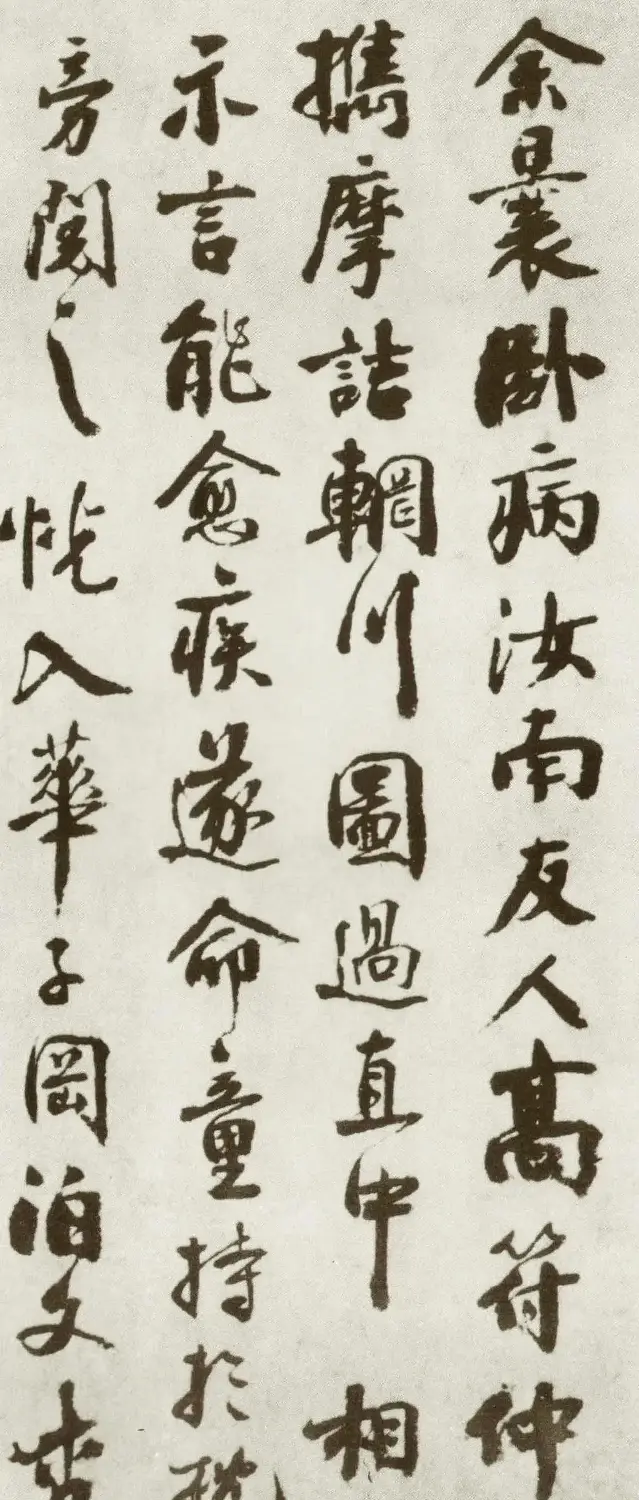 余曩臥病汝南友人高符仲
攜摩詰輞川圖過直中相
示言能愈疾遂命童持於枕
旁閱之恍入華子岡泊文杏